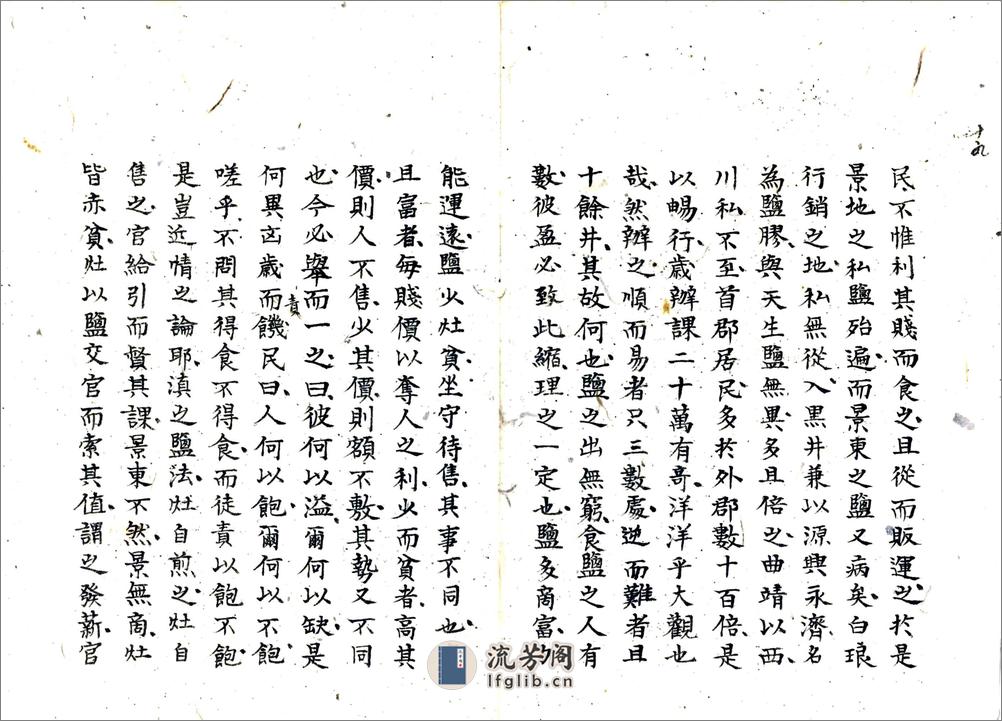 十九
民不惟利其賤而食之且從而販運之於是
景地之私鹽殆遍而景東之鹽又病矣白琅
行銷之地私無從入黑井兼以源興永濟名
為鹽膠與天生鹽無異多且倍之曲靖以西
川私不至首郡居民多於外郡數十百倍是
以暢行歲辦課二十萬有奇洋洋乎大觀也
哉然辦之順而易者只三數處逆而難者且
十餘井其故何也鹽之出無窮食鹽之人有
數彼盈必致此縮理之一定也鹽多商富
能運遠鹽少灶貧坐守待售其事不同也
且富者每賤價以奪人之利少而貧者高其
價則人不售少其價則額不敷其勢又不同
也今必舉而一之曰彼何以溢爾何以缺是
何異凶歲而責饑民曰人何以飽爾何以不飽
嗟乎不問其得食不得食而徒責以飽不飽
是豈近情之論耶滇之鹽法灶自煎之灶自
售之官給引而督其課景東不然景無商灶
皆赤貧灶以鹽交官而索其值謂之發薪官
流芳阁
lfglib.cn